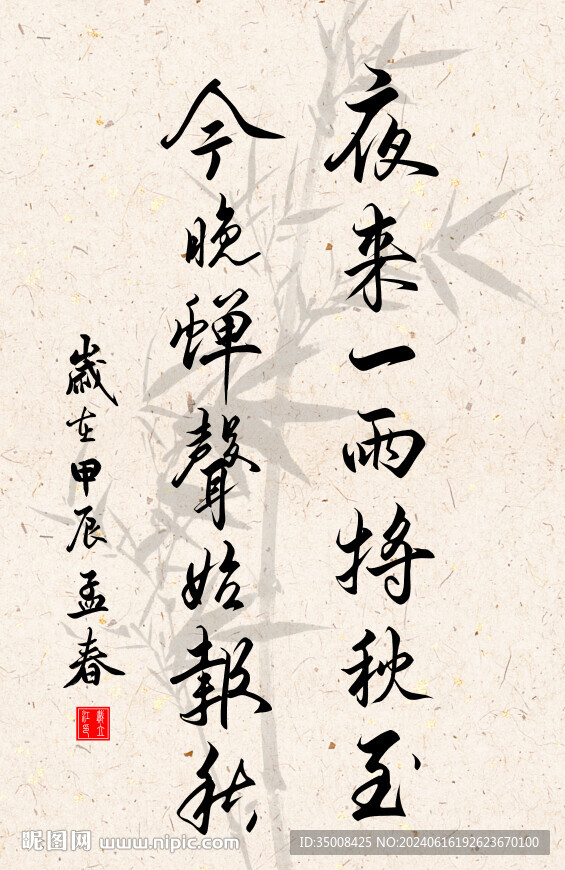 夜来一雨将秋至
今晚蝉聲始報秋
歲在甲辰孟春
昵图网 www.nipic.com
ID:35008425 NO:20240616192623670100